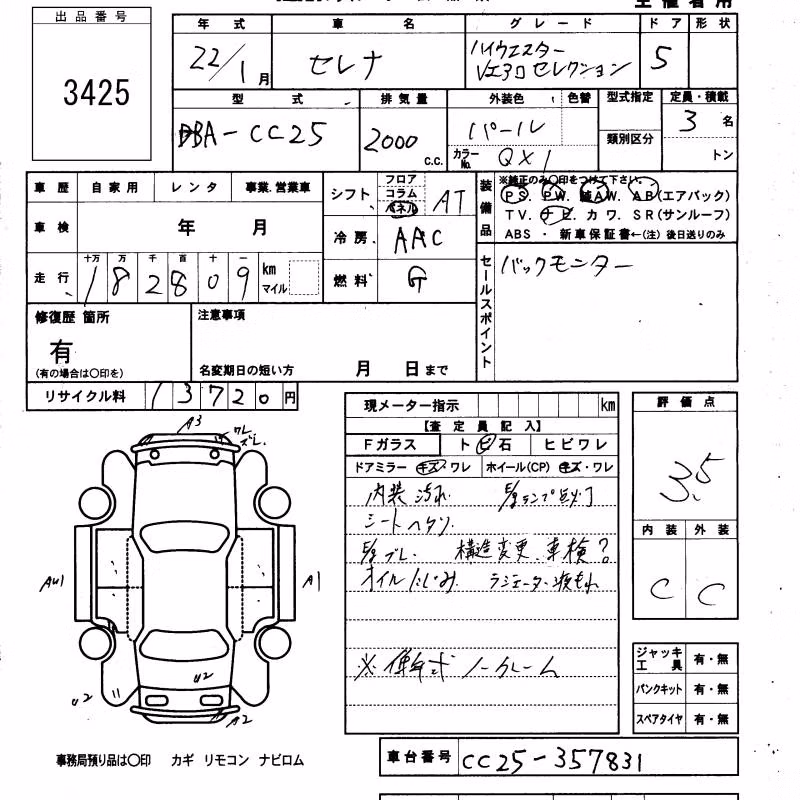 出品番号
3425
年式 車名 グレード ドア 形状
22/1月 セレナ ハイウエスター
Vエアロセレクション 5
型式 排気量 外装色 色替 型式指定 定員・積載
DBA-CC25 2000 c.c. パール 類別区分 3名
カラーNo. QX1 トン
車歴 自家用 レンタ 事業.営業車
シフト フロア コラム パネル AT
装備品 ※純正のみ○印をつけて下さい。
PS. PW. AW. AB(エアバック)
TV. ナビ. カワ. SR(サンルーフ)
ABS ・ 新車保証書←(注) 後日送りのみ
車検 年 月
冷房 AAC
走行 十万 万 千 百 十 一
182809 km マイル
燃料 G
セールスポイント バックモニター
修復歴 箇所
有
(有の場合は○印を)
注意事項
名変期日の短い方 月 日まで
リサイクル料 13720円
現メーター指示 km
【査定員記入】
Fガラス トビ石 ヒビワレ
ドアミラー キズ・ワレ ホイール(CP) キズ・ワレ
内装 汚れ. E/gランプ点灯
シートヘタリ.
E/gブレ. 構造変更、車検?
オイルにじみ ラジエーター液もれ
ノークレーム
評価点
3.5
内装 外装
C C
A3
ワレ
ズレ.
AU1
A1
U2
U2
A2
ジャッキ工具 有・無
パンクキット 有・無
スペアタイヤ 有・無
事務局預り品は○印 カギ リモコン ナビロム
車台番号 CC25-357831